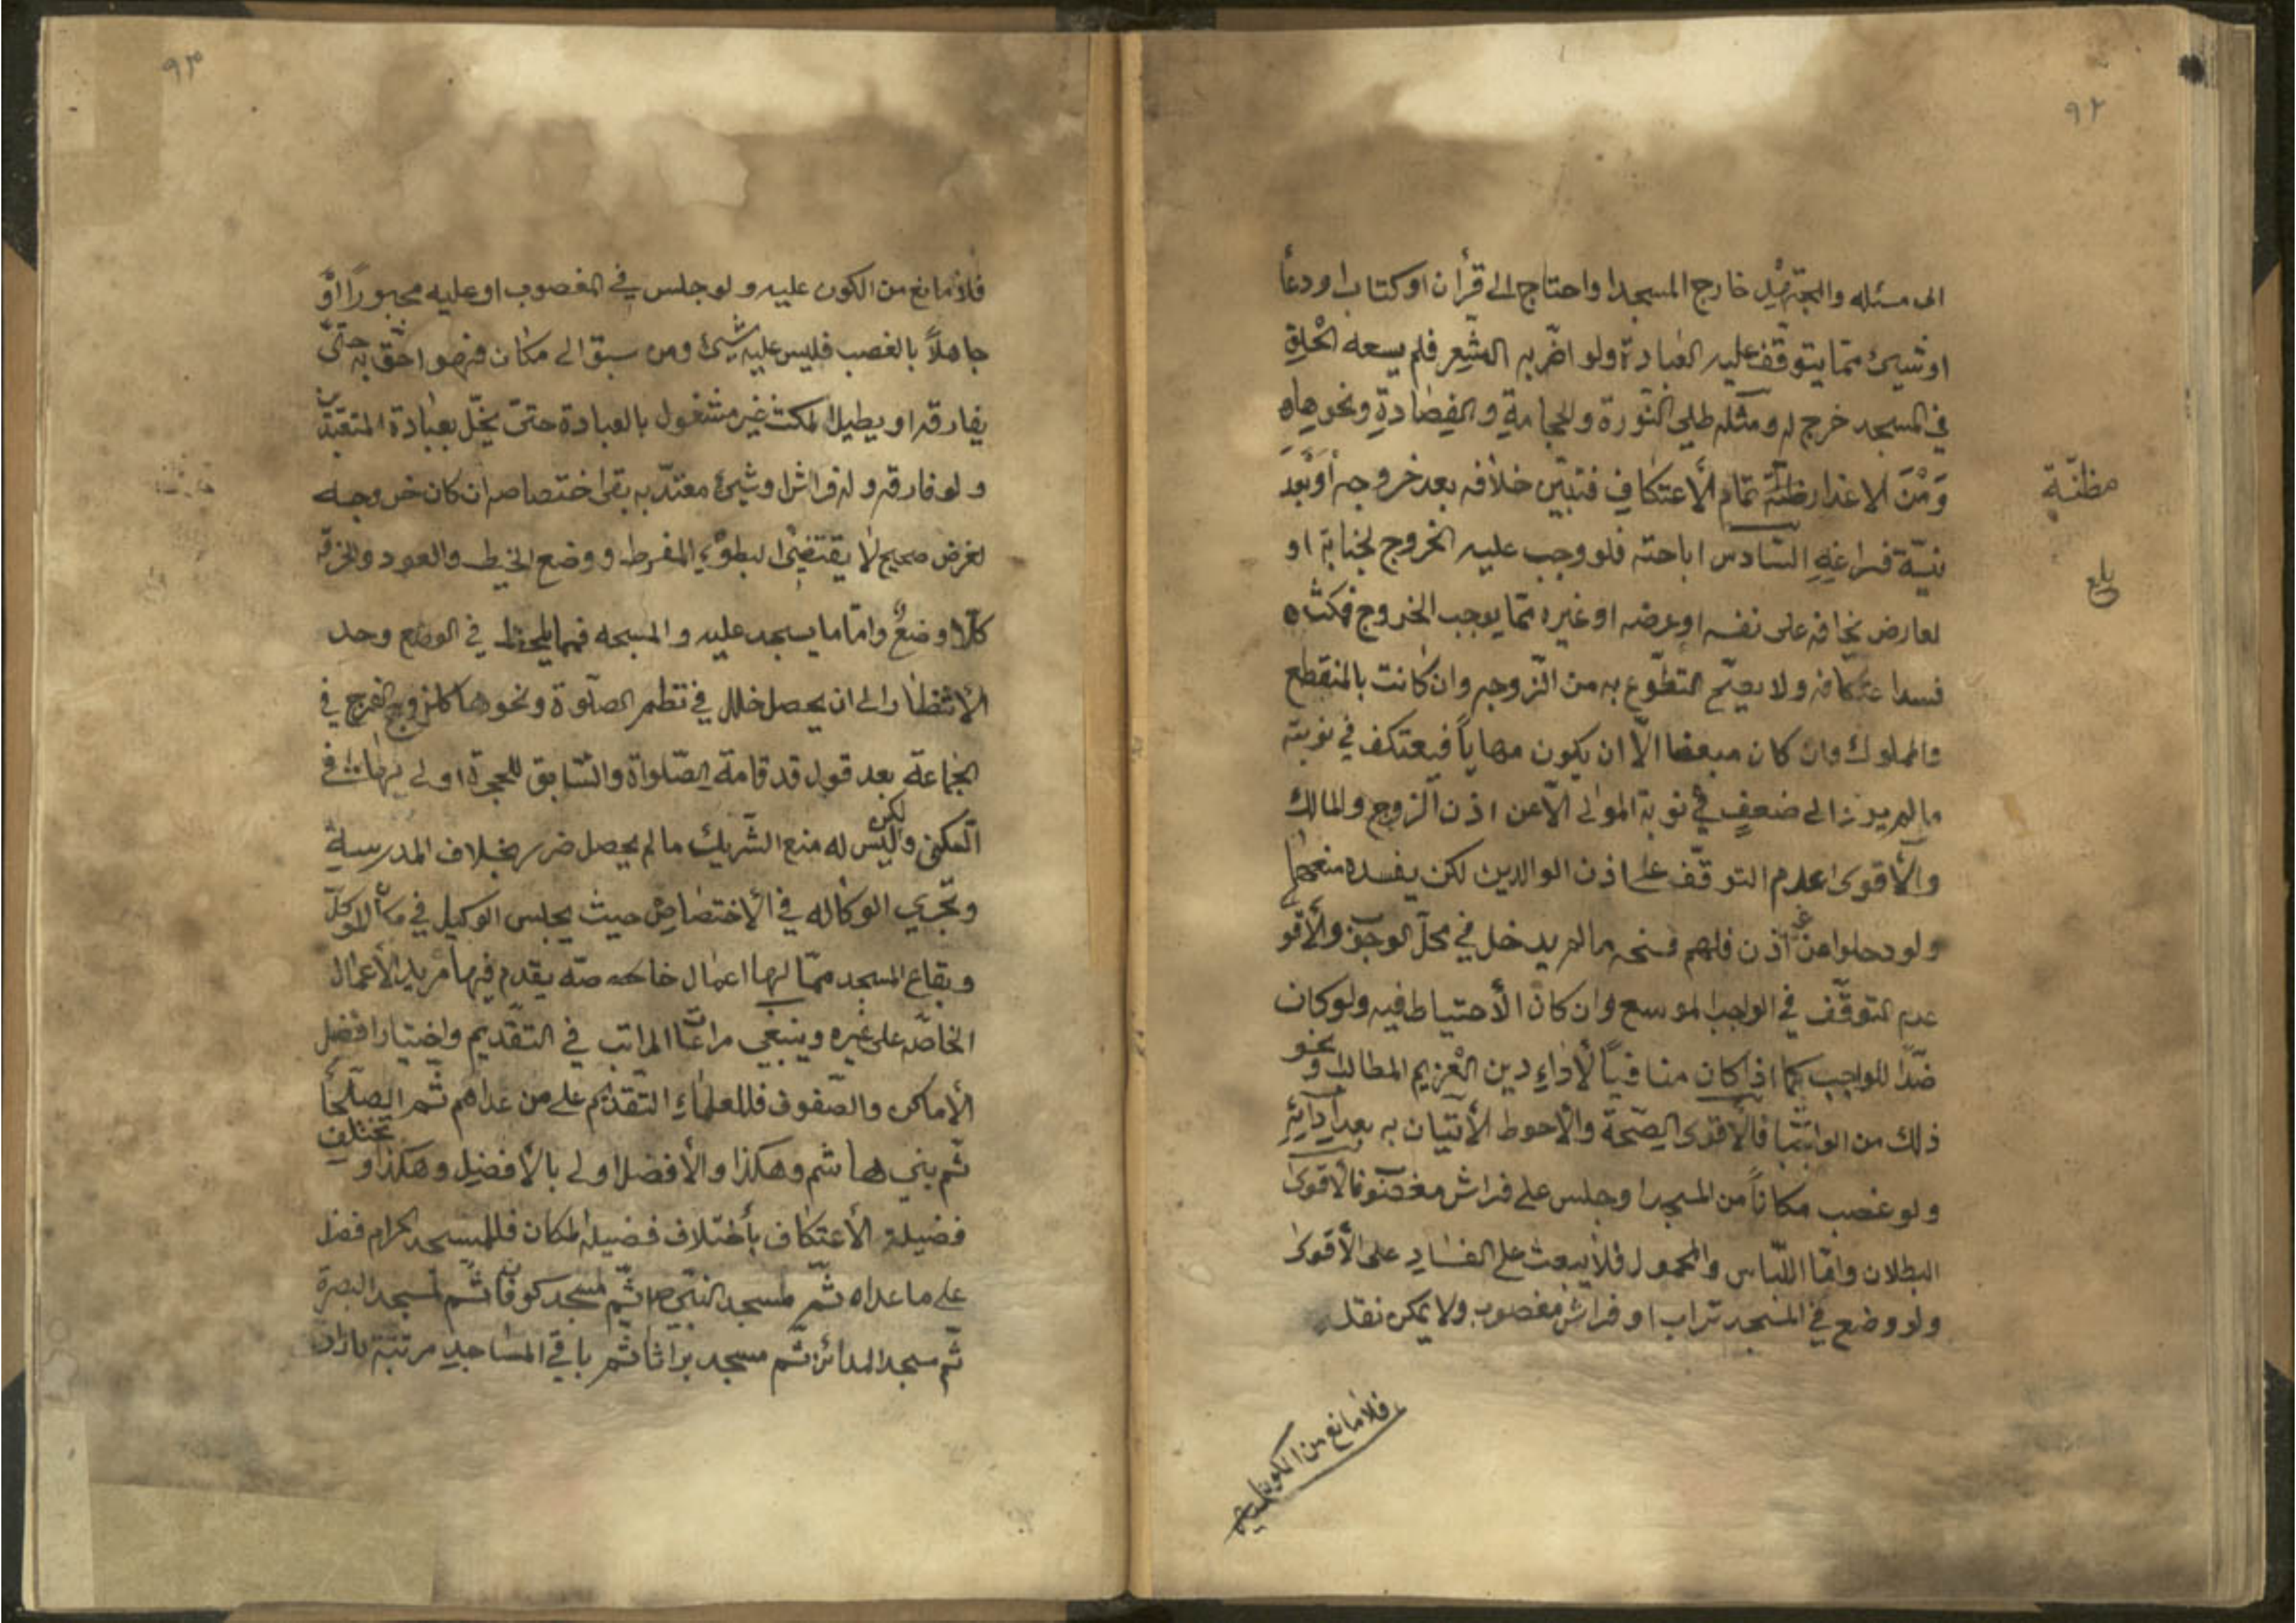 ٩٢
الى مسئله والمجتهد خارج المسجد او احتاج الى قرأن او كتاب او دعا
او شيئ مما يتوقف عليه العبادة ولو اضر به الشعر فلم يسعه الحلق
في المسجد خرج له ومثله طلي النورة والحجامة والفصادة ونحوها
ومن الاعذار مظنة تمام الأعتكاف فتبين خلافه بعد خروجه أو بعد
مظنّة
نيّة فراغه السّادس اباحته فلو وجب عليه الخروج لجنابة او
بلغ
لعارض يخافه على نفسه او عرضه او غيره مما يوجب الخروج فمكث
فسد اعتكافه ولا يصح التطوع به من الزوجه وان كانت بالمنقطع
والمملوك وان كان مبعضا الّا ان يكون مهاياً فيعتكف في نوبته
ما لم يؤد الى ضعف في نوبة المولى الّا عن اذن الزوج والمالك
والأقوى عدم التوقف على اذن الوالدين لكن يفسده منعهما
ولو دخلوا من غير أذن فلهم فسخه ما لم يدخل في محل الوجوب والأقوى
عدم التوقف في الواجب الموسع وان كان الأحتياط فيه ولو كان
ضدّا للواجب كما اذا كان منافياً لأداء دين الغريم المطالب ونحو
ذلك من الواجبات فالأقوى الصّحة والأحوط الأتيان به بعد أدائه
ولو غصب مكاناً من المسجد او جلس على فراش مغصوب فالأقوى
البطلان وامّا اللّباس والمحمول فلا يبعث على الفساد على الأقوى
ولو وضع في المسجد تراب او فراش مغصوب ولا يمكن نقله
فلا مانع من الكون عليه
٩٣
فلا مانع من الكون عليه ولو جلس في المغصوب او عليه مجبوراً او
جاهلاً بالغصب فليس عليه شيئ ومن سبق الى مكان فهو احقّ به حتىّ
يفارقه او يطيل المكث غير مشغول بالعبادة حتىّ يخلّ بعبادة المتعبّدين
ولو فارقه وله فراش او شيئ معتدّ به بقى اختصاصه ان كان خروجه
لغرض صحيح لا يقتضي البطوء المفرط ووضع الخيط والعود والخرقه
كلا وضع وامّا ما يسجد عليه والمسبحه فيما يلحظ في الوضع وحد
الأنتظار الى ان يحصل خلل في نظم الصلوة ونحوها كلزوم الفرج في
الجماعة بعد قول قد قامة الصّلواة والسّابق للحجرة اولى بها في
السكنى ولكن ليس له منع الشّريك ما لم يحصل ضرر بخلاف المدرسة
وتجري الوكاله في الأختصاص حيث يجلس الوكيل في مكان الموكلّ
وبقاع المسجد ممّا لها اعمال خاصه يقدم فيها مريد الأعمال
الخاصّه على غيره وينبغي مراعات المراتب في التقديم واختيار افضل
الأماكن والصّفوف فللعلماء التقديم على من عداهم ثم الصلحا
ثم بني هاشم وهكذا والأفضل اولى بالأفضل وهكذا وتختلف
فضيلة الأعتكاف بأختلاف فضيلة المكان فللمسجد الحرام فضل
على ما عداه ثم لمسجد النبّي ص ثم لمسجد كوفان ثم لمسجد البصرة
ثم مسجد المدائن ثم مسجد براثا ثم باقي المساجد مرتبة بازاد